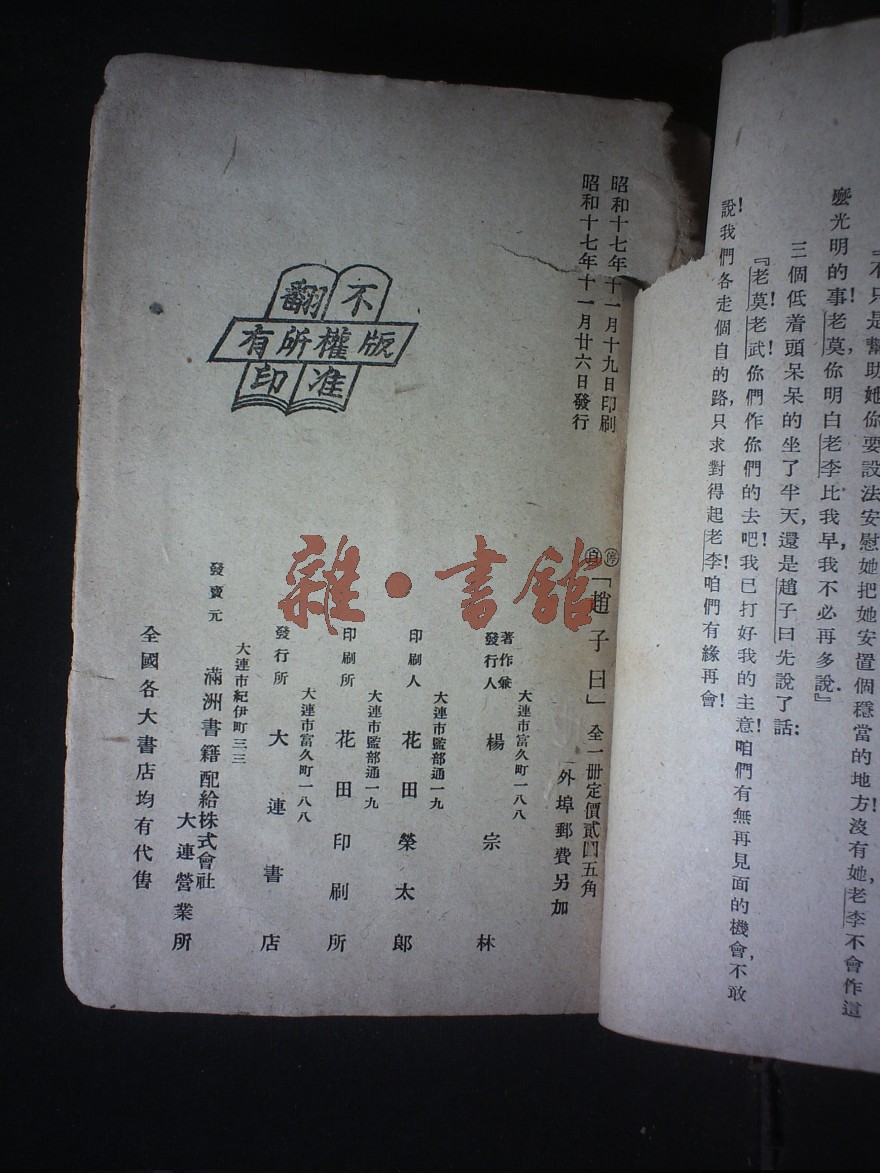 『不只是幫助她你要設法安慰她把她安置個穩當的地方!沒有她,老李不會作這
麼光明的事!老莫,你明白老李比我早,我不必再多說.』
三個低着頭呆呆的坐了半天,還是趙子曰先說了話:
『老莫!老武!你們作你們的去吧!我已打好我的主意!咱們有無再見面的機會,不敢
說!我們各走個自的路,只求對得起老李!咱們有緣再會!
昭和十七年十一月十九日印刷
昭和十七年十一月廿六日發行
停
「趙子曰」 全一冊定價貳圓五角
外埠郵費另加
大連市富久町一八八
著作兼發行人 楊宗林
大連市監部通一九
印刷人 花田榮太郎
大連市監部通一九
印刷所 花田印刷所
大連市富久町一八八
發行所 大連書店
大連市紀伊町三三
發賣元 滿洲書籍配給株式會社
大連營業所
全國各大書店均有代售
不翻
版權所有
准印
雜·書館